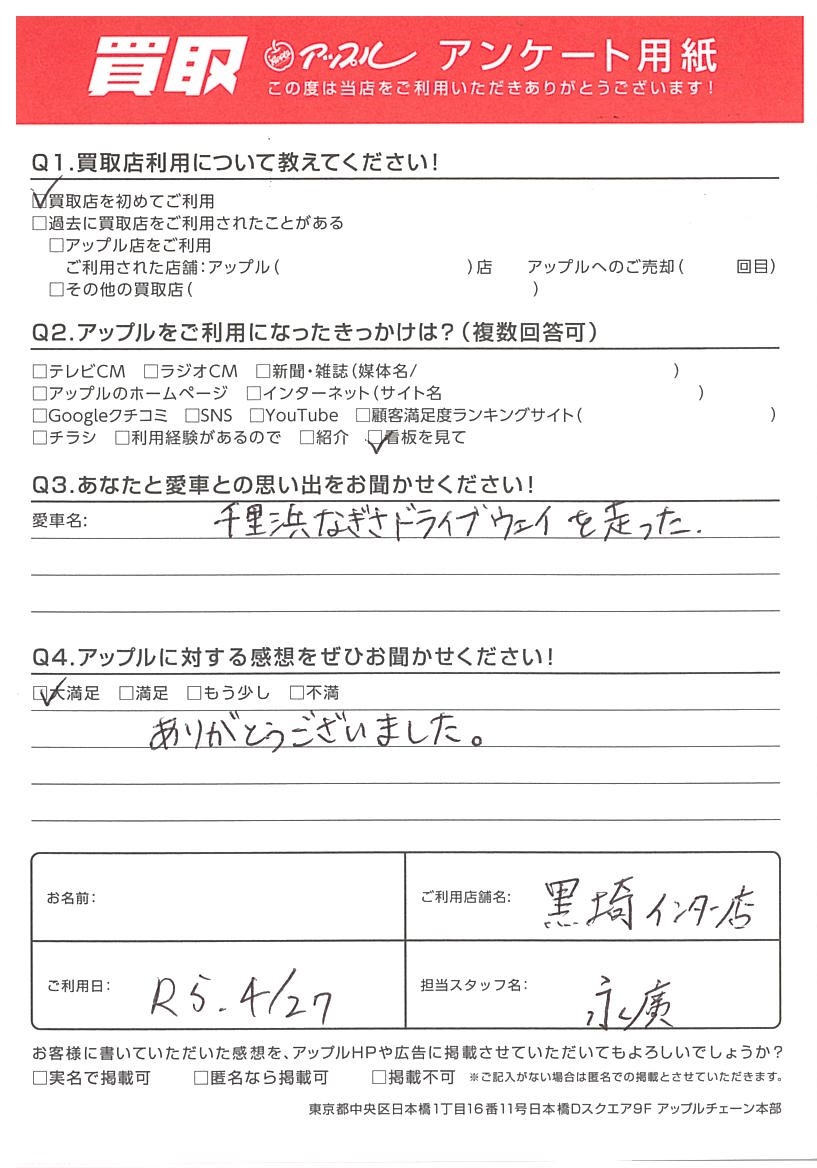 買取 アップル アンケート用紙
この度は当店をご利用いただきありがとうございます!
Q1.買取店利用について教えてください!
☑買取店を初めてご利用
□過去に買取店をご利用されたことがある
□アップル店をご利用
ご利用された店舗:アップル( )店 アップルへのご売却( 回目)
□その他の買取店( )
Q2.アップルをご利用になったきっかけは?(複数回答可)
□テレビCM □ラジオCM □新聞・雑誌(媒体名/ )
□アップルのホームページ □インターネット(サイト名 )
□Googleクチコミ □SNS □YouTube □顧客満足度ランキングサイト( )
□チラシ □利用経験があるので □紹介 ☑看板を見て
Q3.あなたと愛車との思い出をお聞かせください!
愛車名: 千里浜なぎさドライブウェイを走った.
Q4.アップルに対する感想をぜひお聞かせください!
☑大満足 □満足 □もう少し □不満
ありがとうございました。
お名前:
ご利用店舗名: 黒埼インター店
ご利用日: R5.4/27
担当スタッフ名: 永廣
お客様に書いていただいた感想を、アップルHPや広告に掲載させていただいてもよろしいでしょうか?
□実名で掲載可 □匿名なら掲載可 □掲載不可 ※ご記入がない場合は匿名での掲載とさせていただきます。
東京都中央区日本橋1丁目16番11号日本橋Dスクエア9F アップルチェーン本部